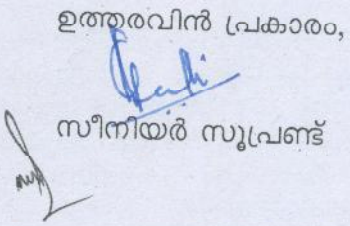 ഉത്തരവിൻ പ്രകാരം,
സീനിയർ സൂപ്രണ്ട്